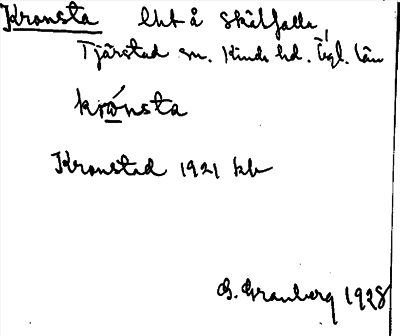 Kronsta lht å Skälfalla,
Tjärstad sn. Kinds hd. Ögl. län
krónsta
Kronstad 1921 kb
G. Granberg 1928